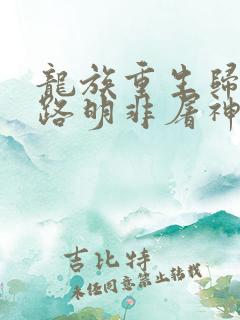 龍族重生歸
路明非屠神
吉比特
未经同意禁止转载